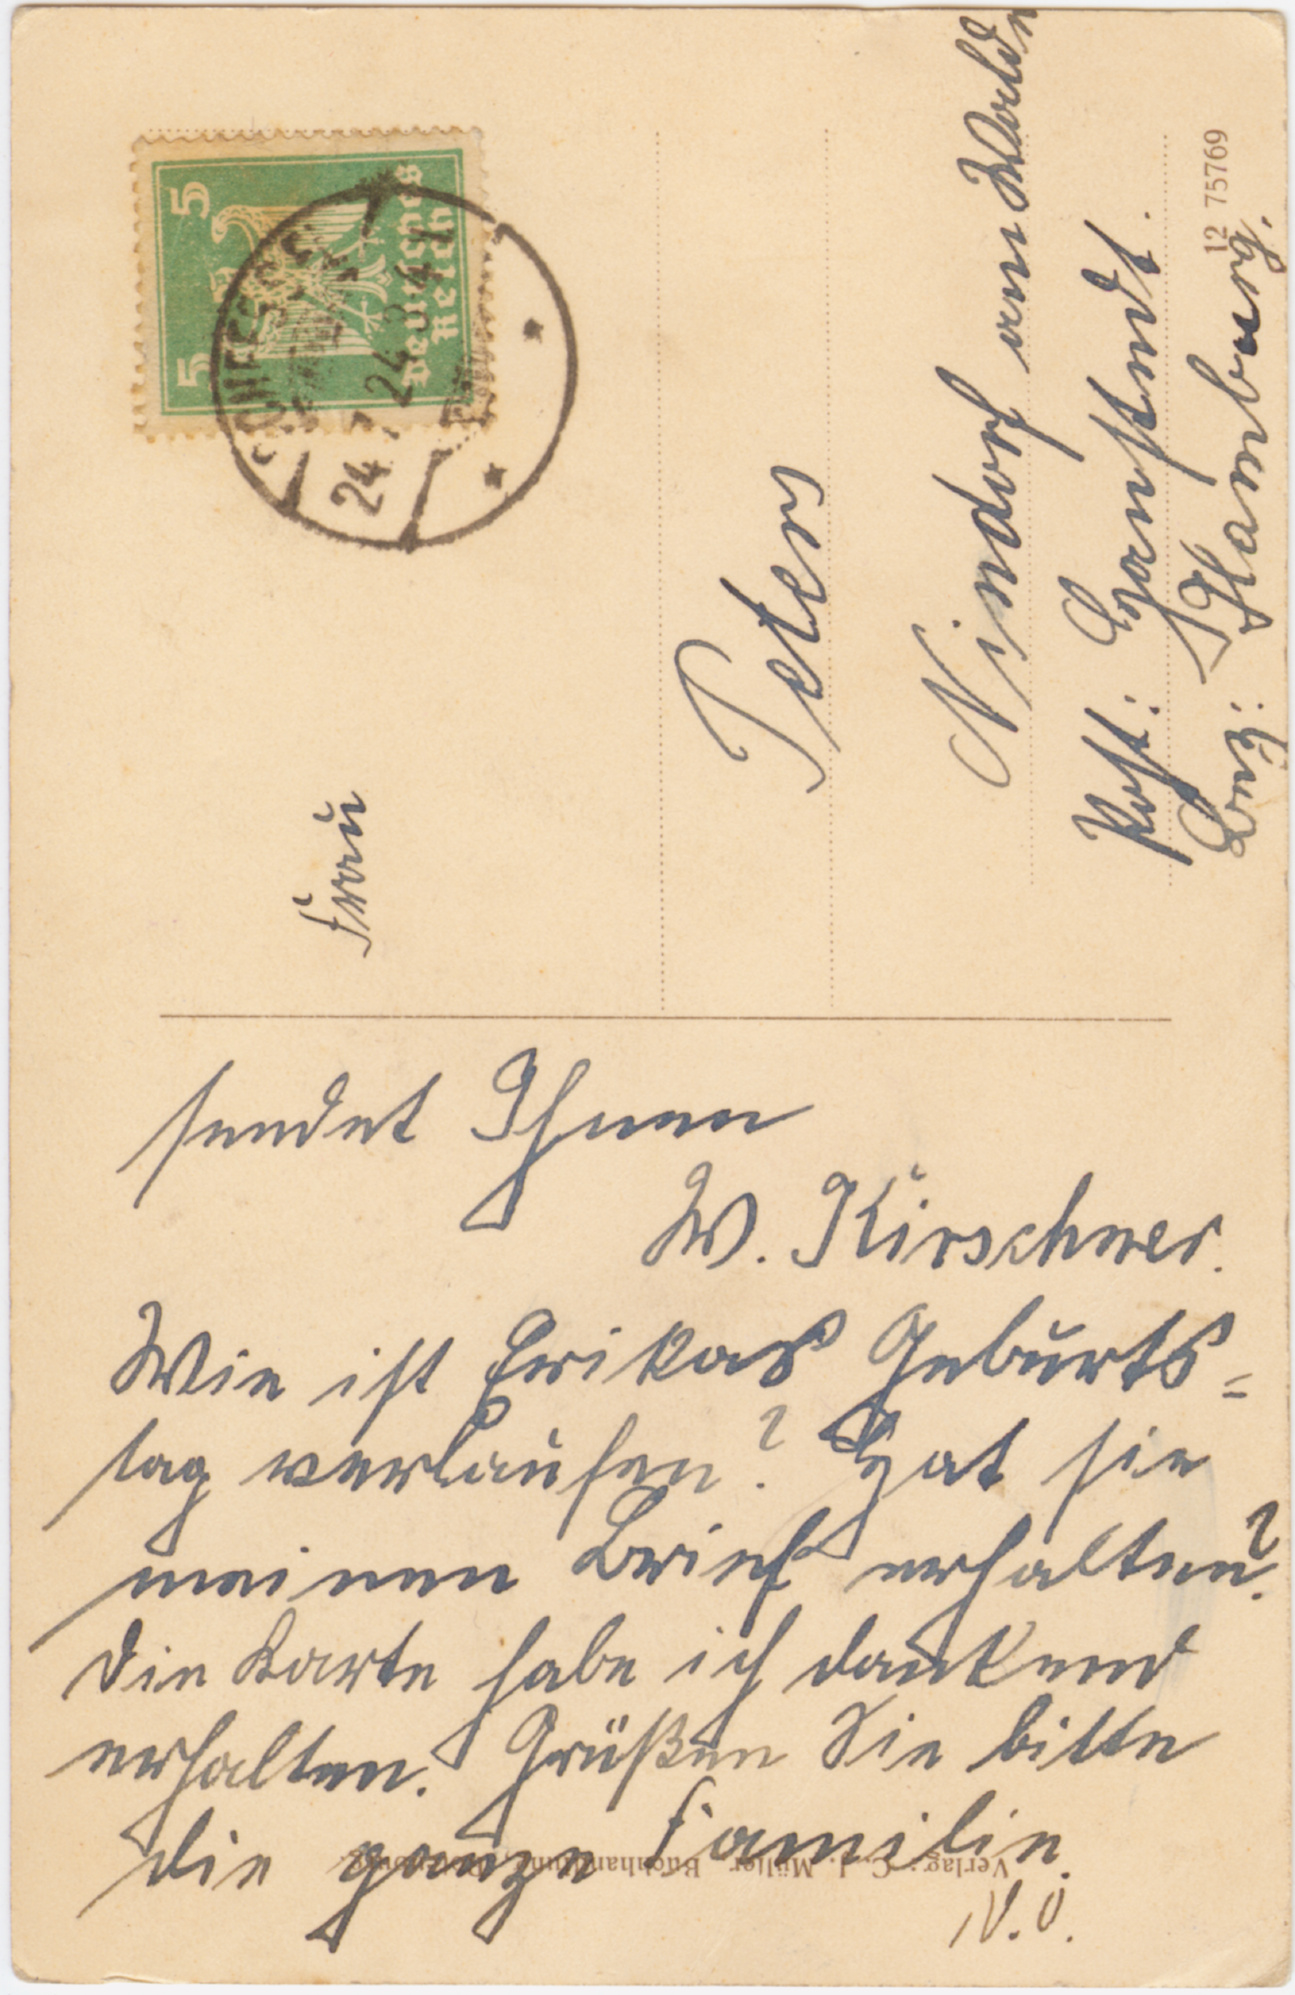 sendet Ihnen
W. Kirschner.
Wie ist Erikas Geburts=
tag verlaufen? Hat sie
meinen Brief erhalten?
Die Karte habe ich dankend
erhalten. Grüßen Sie bitte
die ganze Familie.
Verlag: C. J. Müller, Buchhandlung,
Frau
Peters
Nindorf am Walde
Post: Hanstedt.
Bez: Hamburg.
12 75769
5 5
Deutsches
Reich
24 7 24 3-4